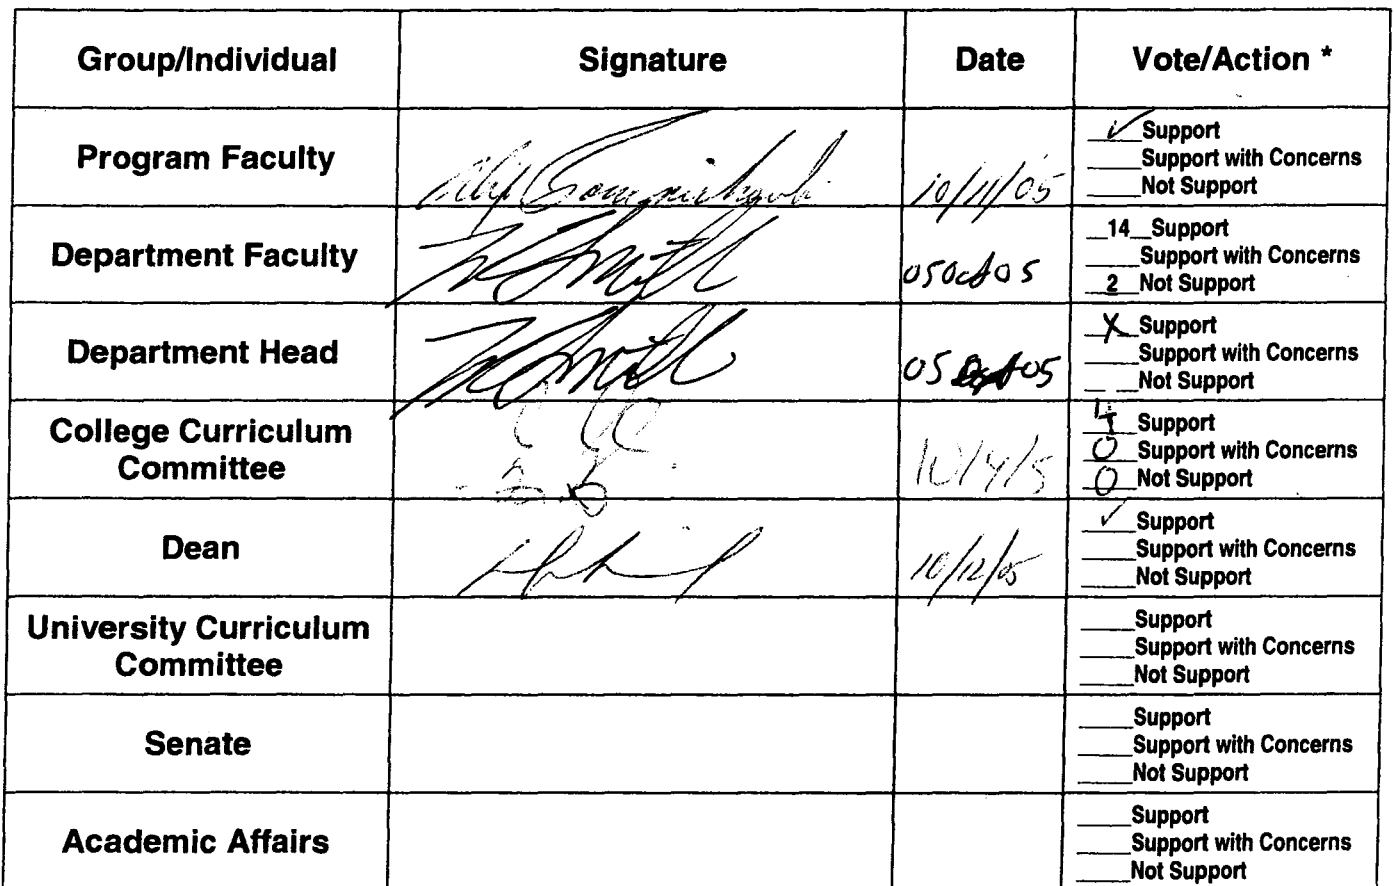 Group/Individual Signature Date Vote/Action *
Program Faculty 10/11/05
Support
Support with Concerns
Not Support
Department Faculty Smith 05Oct05
14 Support
Support with Concerns
2 Not Support
Department Head Smith 05 Oct 05
X Support
Support with Concerns
Not Support
College Curriculum
Committee 10/4/5
4 Support
0 Support with Concerns
0 Not Support
Dean 10/12/05
Support
Support with Concerns
Not Support
University Curriculum
Committee
Support
Support with Concerns
Not Support
Senate
Support
Support with Concerns
Not Support
Academic Affairs
Support
Support with Concerns
Not Support